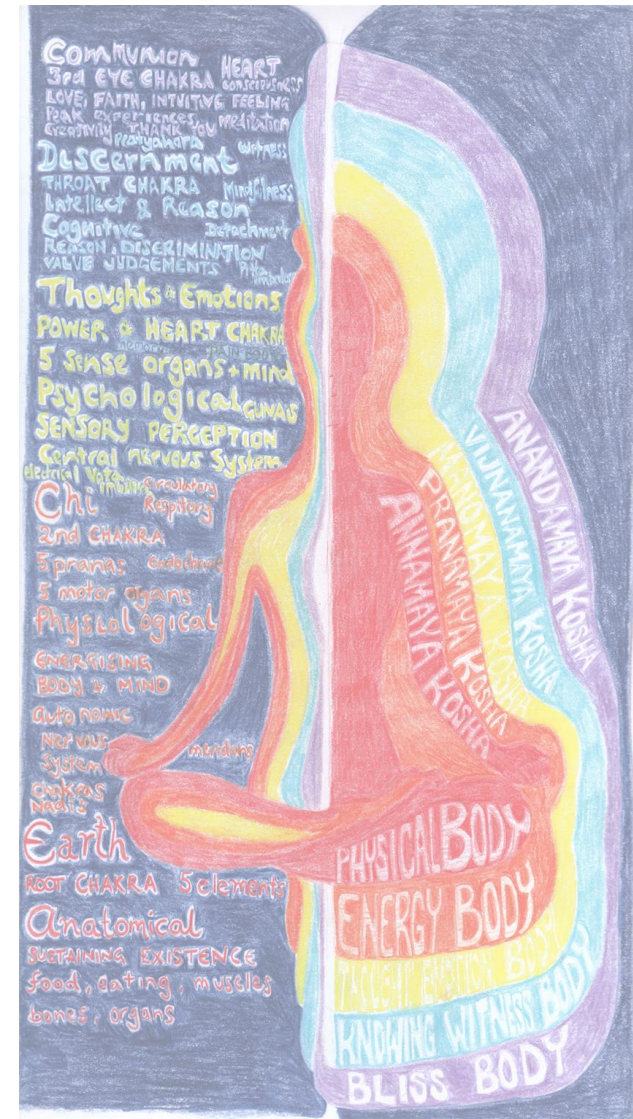 Communion HEART
3rd EYE CHAKRA consciousness
LOVE, FAITH, INTUITIVE FEELING
Peak experiences, meditation
Creativity THANK YOU
Pratyahara witness
Discernment
THROAT CHAKRA Mindfulness
Intellect & Reason
Cognitive Detachment
REASON, DISCRIMINATION
VALUE JUDGEMENTS
Thoughts & Emotions
POWER & HEART CHAKRA
PAIN BODY
5 Sense organs + mind
Psychological GUNAS
SENSORY PERCEPTION
Central nervous System
electrical
Circulatory
Chi Respitory
2nd CHAKRA
5 pranas Endochrine
5 motor organs
Physiological
ENERGISING
BODY & MIND
autonomic
Nervous
System meridians
Chakras
Nadis
Earth
ROOT CHAKRA 5 elements
Anatomical
SUSTAINING EXISTENCE
food, eating, muscles
bones, organs
ANANDAMAYA KOSHA
VIJNANAMAYA KOSHA
MANOMAYA KOSHA
PRANAMAYA KOSHA
ANNAMAYA KOSHA
PHYSICAL BODY
ENERGY BODY
THOUGHT EMOTION BODY
KNOWING WITNESS BODY
BLISS BODY